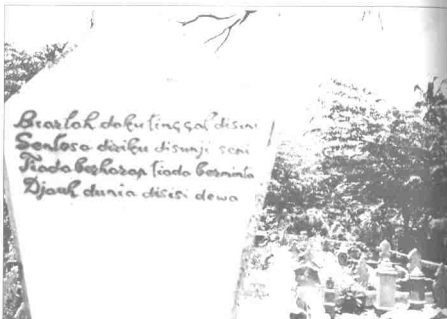 Biarlah daku tinggal disini
Sentosa diriku disunji seni
Tiada berharap tiada berminta
Djauh dunia disisi dewa